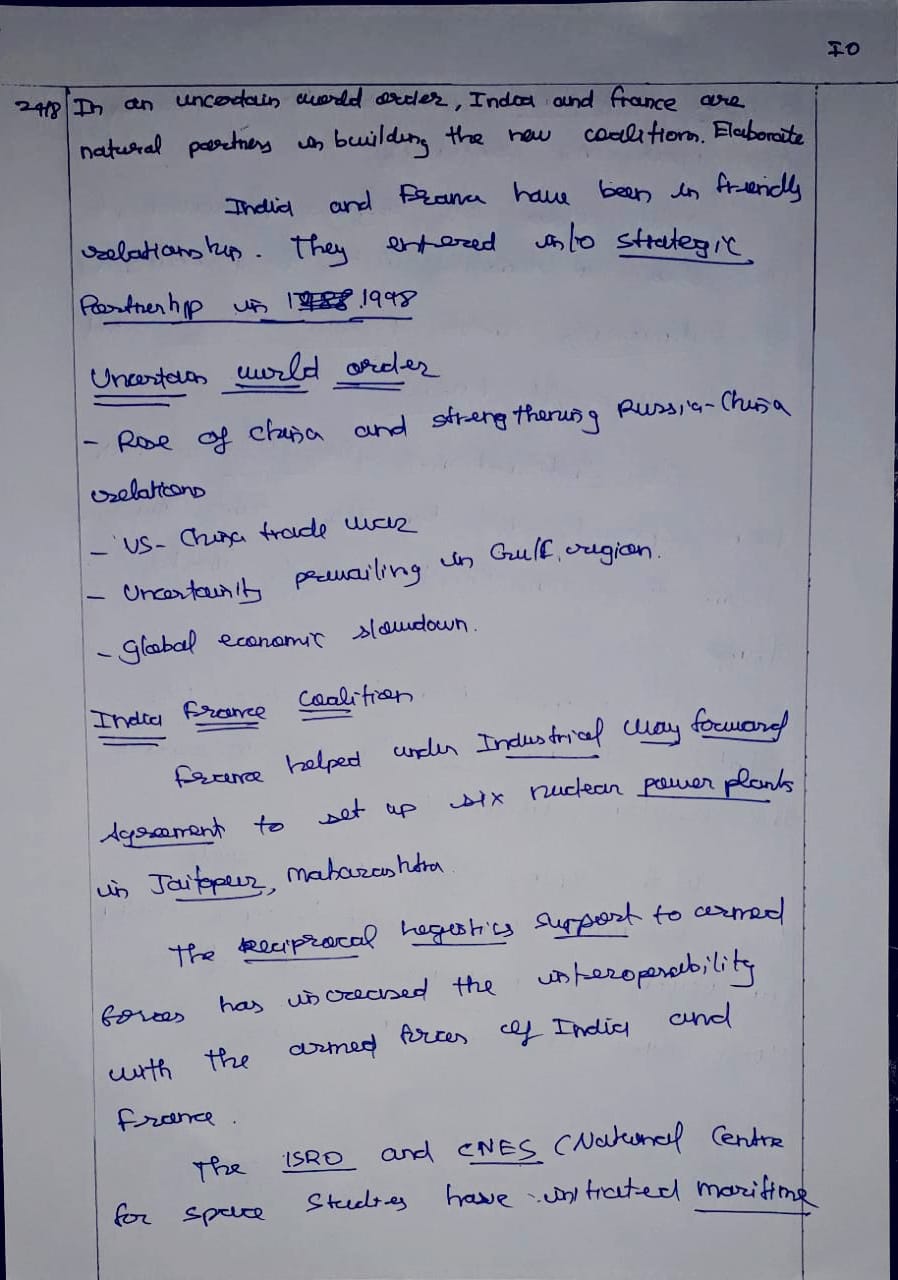 IO
24/8 In an uncertain world order, India and France are
natural partners in building the new coalitions. Elaborate
India and France have been in friendly
relationship. They entered into strategic
Partnership in 1998
Uncertain world order
- Rise of China and strengthening Russia-China
relations
- US-China trade war
- Uncertainity prevailing in Gulf region.
- Global economic slowdown.
India France Coalition
France helped under Industrial way forward
Agreement to set up six nuclear power plants
in Jaitapur, Maharashtra
The Reciprocal Logistics Support to armed
forces has increased the interoperability
with the armed forces of India and
France.
The ISRO and CNES (National Centre
for space studies have initiated maritime